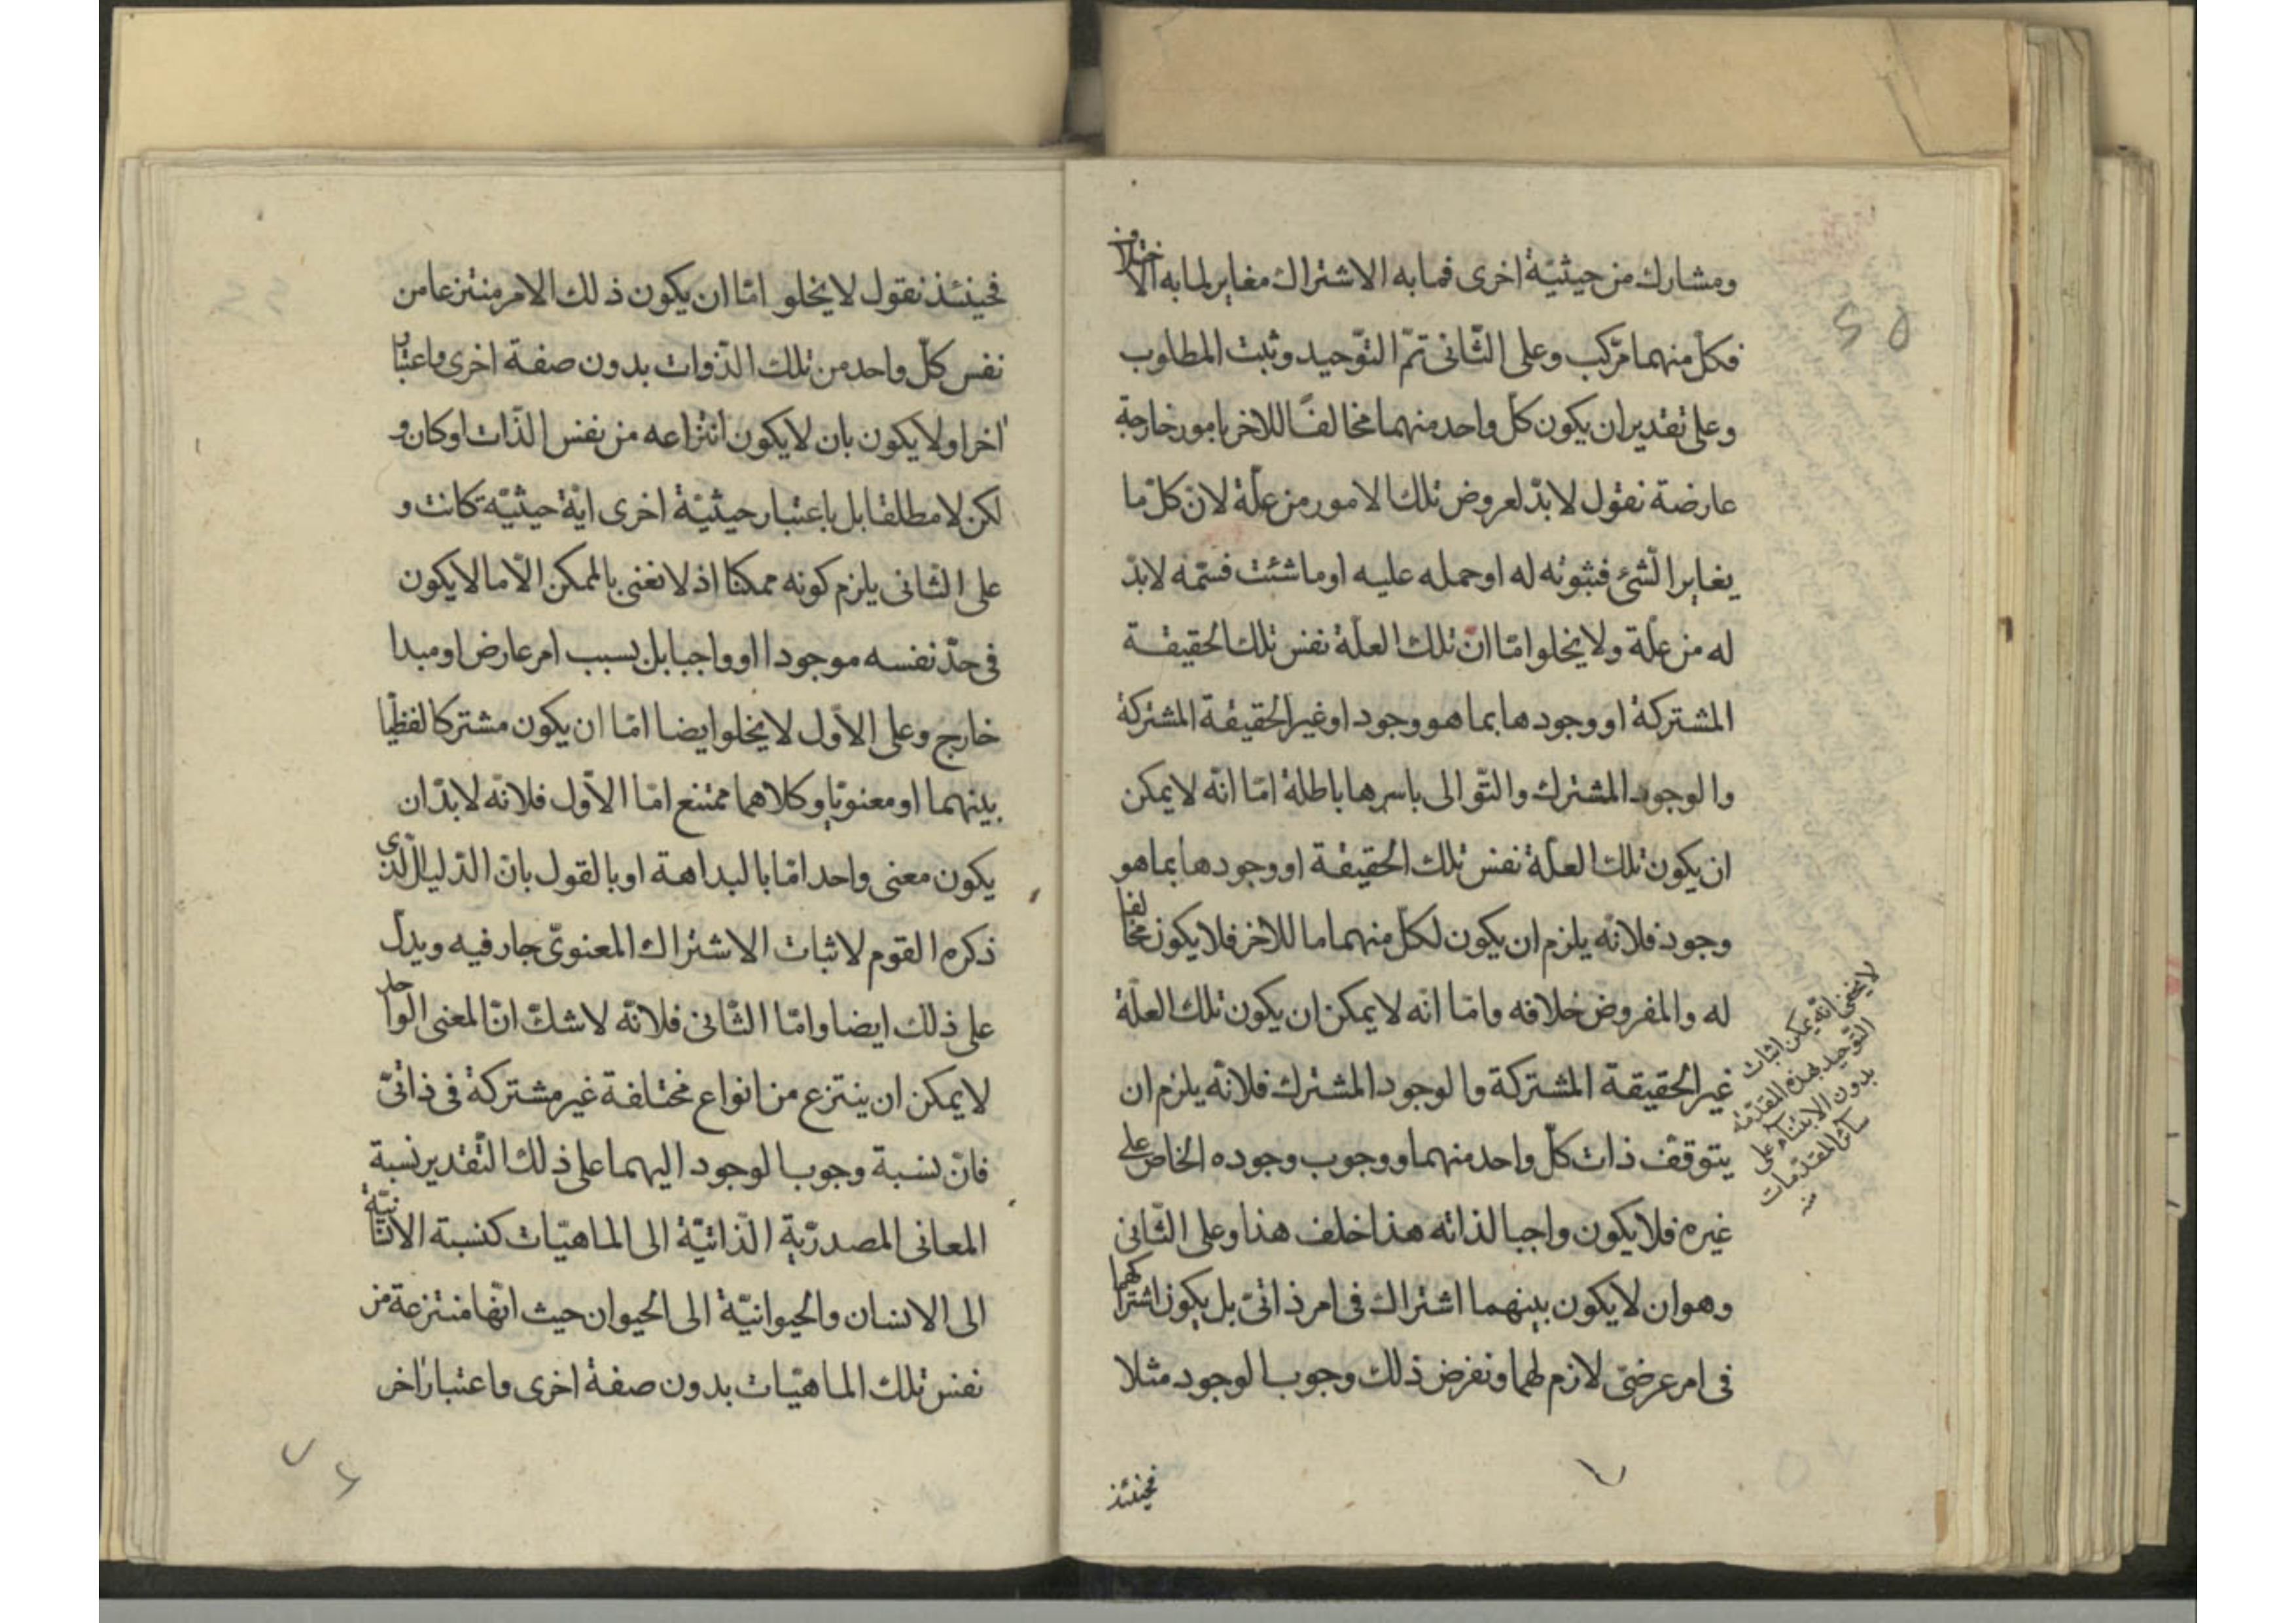 ومشارك من حيثيّة اخرى فما به الاشتراك مغاير لما به الاختلاف
فكلّ منهما مركّب وعلى الثّانى تمّ التّوحيد وثبت المطلوب
وعلى تقدير ان يكون كلّ واحد منهما مخالفًا للاخر بامور خارجة
عارضة نقول لا بدّ لعروض تلك الامور من علّة لانّ كلّ ما
يغاير الشّئ فثبوته له او حمله عليه او ما شئت فسمّه لا بدّ
له من علّة ولا يخلو امّا انّ تلك العلّة نفس تلك الحقيقة
المشتركة او وجودها بما هو وجود او غير الحقيقة المشتركة
والوجود المشترك والتّوالى باسرها باطلة امّا انّه لا يمكن
ان يكون تلك العلّة نفس تلك الحقيقة او وجودها بما هو
وجود فلانّه يلزم ان يكون لكلّ منهما ما للاخر فلا يكون مخالفا
له والمفروض خلافه وامّا انّه لا يمكن ان يكون تلك العلّة
غير الحقيقة المشتركة والوجود المشترك فلانّه يلزم ان
يتوقّف ذات كلّ واحد منهما ووجوب وجوده الخاصّ على
غيره فلا يكون واجبا لذاته هذا خلف هذا وعلى الثّانى
وهو ان لا يكون بينهما اشتراك فى امر ذاتىّ بل يكون اشتراكهما
فى امر عرضىّ لازم لهما ونفرض ذلك وجوب الوجود مثلا
فحينئذ
لا يخفى انّه يمكن اثبات
التّوحيد بهذه المقدّمة
بدون الابتناء على
سائر المقدّمات
منه
٢٥
فحينئذ نقول لا يخلو امّا ان يكون ذلك الامر منتزعا من
نفس كلّ واحد من تلك الذّوات بدون صفة اخرى واعتبار
اخر او لا يكون بان لا يكون انتزاعه من نفس الذّات او كان و
لكن لا مطلقا بل باعتبار حيثيّة اخرى ايّة حيثيّة كانت و
على الثّانى يلزم كونه ممكنا اذ لا نعنى بالممكن الّا ما لا يكون
فى حدّ نفسه موجودا او واجبا بل بسبب امر عارض او مبدا
خارج وعلى الاوّل لا يخلو ايضا امّا ان يكون مشتركا لفظيّا
بينهما او معنويّا وكلاهما ممتنع امّا الاوّل فلانّه لا بدّ ان
يكون معنى واحد امّا بالبداهة او بالقول بانّ الدّليل الّذى
ذكره القوم لاثبات الاشتراك المعنوىّ جار فيه ويدلّ
على ذلك ايضا وامّا الثّانى فلانّه لا شكّ انّ المعنى الواحد
لا يمكن ان ينتزع من انواع مختلفة غير مشتركة فى ذاتىّ
فانّ نسبة وجوب الوجود اليهما على ذلك التّقدير نسبة
المعانى المصدريّة الذّاتيّة الى الماهيّات كنسبة الانسانيّة
الى الانسان والحيوانيّة الى الحيوان حيث انّها منتزعة من
نفس تلك الماهيّات بدون صفة اخرى واعتبار اخر